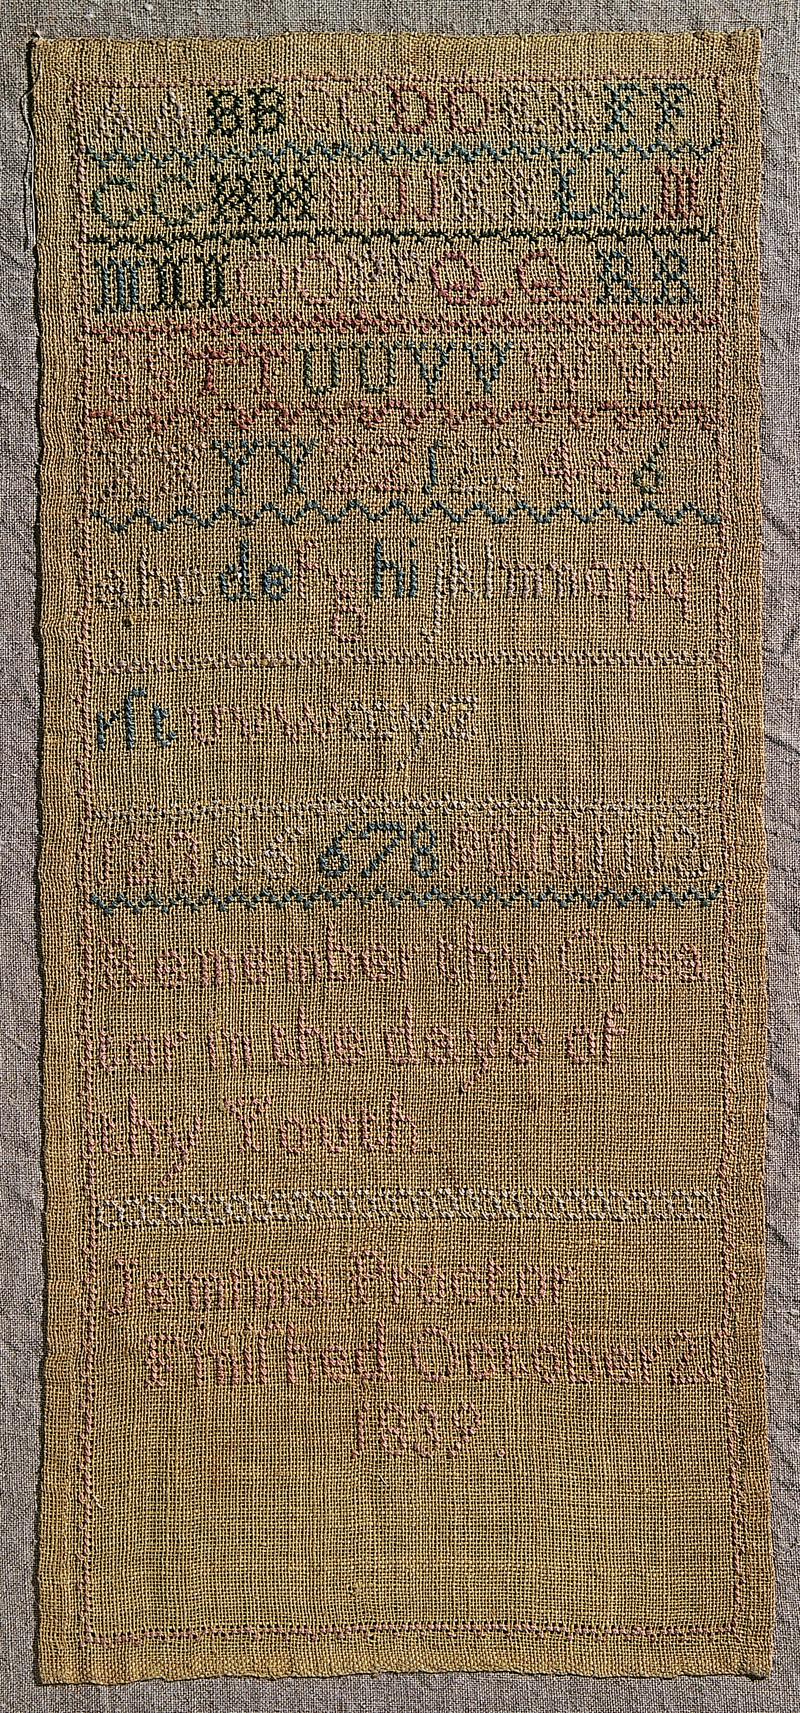 AABBCCDDEEFF
GGHHIIJJKKLLM
MNNOOPPQQRR
SSTTUUVVWW
XXYYZZ123456
abcdefghijklmnopq
rſtuvwxyz
123456789101112
Remember thy Crea
tor in the days of
thy Youth
Jemima Proctor
Finiſhed October 21
1839.